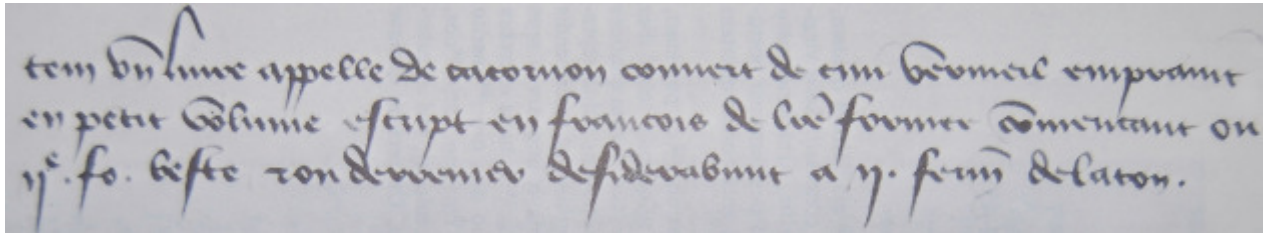 tem vn liure appelle de cacornon couuert de cuir vermeil empraint
en petit volume escript en francois de lre formee comencant ou
ije. fo. beste et ou derrenier desiderabunt a ij. ferm delaton.